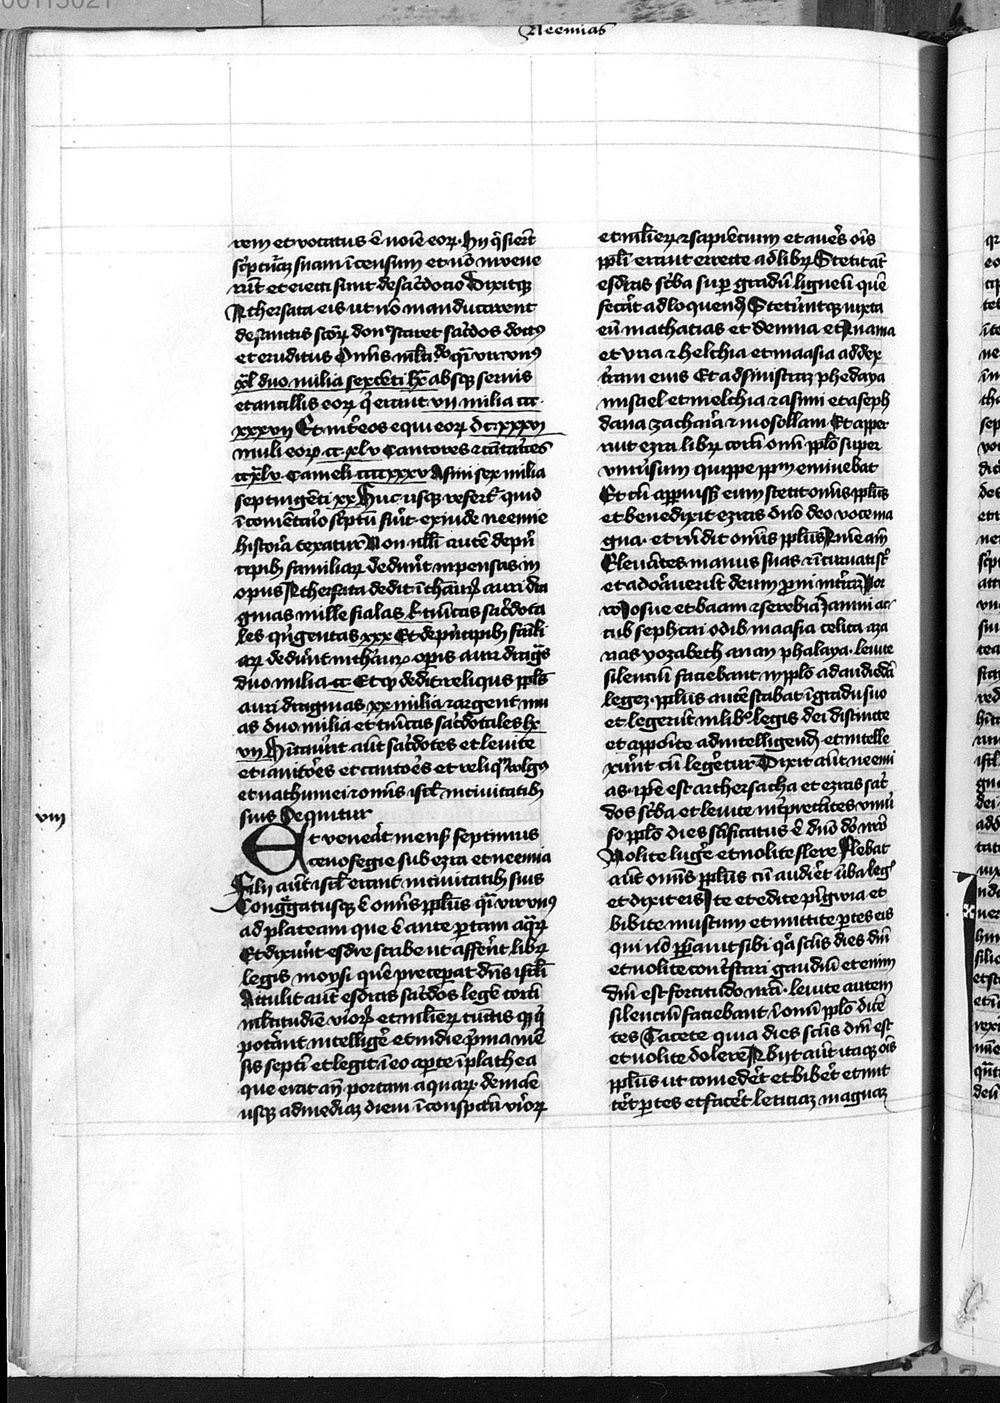 00115021
Neemias
rem et vocatus ē noīe eoꝝ· hij q̄sierūt
sc̄ptur̄aꝫ suam ī censum et nō invene
rūt et eiecti sunt de sac̄dotio Dixitqꝫ
Athersata eis ut nō manducarent
de sanctis scōꝝ donec staret sac̄dos doctꝰ
et eruditus Omīs mltitudo q̄si vir vnꝰ
xl duo milia sexcēti lx absqꝫ servis
et ancillis eoꝝ q̄ erant vii milia ccc
xxxvii Et int̄ eos equi eoꝝ dc xxxvi
muli eoꝝ cc xlv Cantores ⁊ cātatrices
ccxlv· Cameli ccccxxxv Asini sex milia
septingēti xx Huc usqꝫ refert̄ quid
ī comētario sc̄ptū fūit· exinde neemie
historia texatur Non nlli autē de pn̄
cipibꝫ familiaꝝ dederūt inpensas in
opus Athersata dedit ī thauꝝ auri dra
gmas mille fialas l· tunicas sac̄dota
les qngentas xxx Et de pn̄cipibꝫ famili
aꝝ dederūt in thauꝝ opis auri dragīs
duo milia cc Et qd dedit reliqus ppls
auri dragmas xx milia ⁊ argenti mn
as duo milia et tunicas sac̄dotales lx
vii Hitauert aūt sac̄dotes et levite
et ianitōes et cantoēs et reliqm volgꝰ
et nathinnei ⁊ omīs isrl in civitatibꝫ
suis Sequitur
viii
Et veneāt mensꝭ septimus
cenofegie sub ezra et neemia
Filij aūt isrl erant in civitatibꝫ suis
Congꝛgatusqꝫ ē omīs pplus q̄si vir vnꝰ
ad plateam que ē ante portam aqꝝ
Et dixerūt esdre scribe ut afferet librū
legis moysi quē preceperat dn̄s isrli
Attulit aūt esdras sac̄dos legē corā
mltitudīe viroꝝ et mulieꝝ cunctis qꝫ q
poterant intelligēre et in die p̄ma mē
sis septīi et legit ī eo apte ī plathea
que erat an̄ portam aquaꝝ· de mane
usqꝫ ad mediaꝫ diem ī conspectu viroꝝ
et mlieꝝ ⁊ sapiēcium et aures oīs
ppli erant errecte ad libꝝ Stetit aūt
esdras sc̄ba sup gradū ligneū quē
fecat ad loquendꝫ Steterūntqꝫ iuxta
eū mathatias et Semma et Anama
et vria ⁊ helchia et maasia ad dex
tram eius Et ad sinistraꝫ phedaya
misael et melchia ⁊ asum et aseph
dana zacharia ⁊ mosollam Et apper
ruit ezra libꝝ corā omī pplo super
vniusum quippe ppm eminebat
Et cū appuissꝫ eum stetit omīs pplus
et benedixit ezras dn̄o deo voce ma
gna· et rn̄dit omīs pplus Amē am̄
Elevātes manus suas ⁊ īcurvati sūt
et adorauerūt deum pni in tr̄raꝫ Por
ro Iosue et baam ⁊ serebia Iamni ac
cub sephtai odib maasia celita aza
rias yozabeth anan phalaya· levite
silenciū faciebant in pplo ad audiēdā
legeꝫ· pplus autē stabat ī gradu suo
et legerūt in libro legis dei distincte
et appōite ad intelligendꝫ et intelle
xerūt cū legeretur Dixit aūt neemi
as· ipe est arthersacha et ezras sac̄
dos sc̄ba et levite int̄pretātes vniū
so pplo dies sc̄ificatus ē dn̄o do nr̄o
Nolite lugere et nolite flere Flebat
aūt omīs pplus cū audiret v̄ba legꝭ
et dixit eis Ite et edite pingwia et
bibite mustum et mittite ptes eis
qui nō ppauit sibi qa scūs dies dn̄i
et nolite contristari gaudiū etenim
dn̄i est fortitudo nr̄a· levite autem
silenciū faciebant ī omī pplo dicē
tes Tacete quia dies scūs dn̄i est
et nolite dolere Abiit aūt itaqꝫ oīs
pplus ut comedēt et bibēt et mit
tēt ptes et facēt letitiaꝫ magnaꝫ